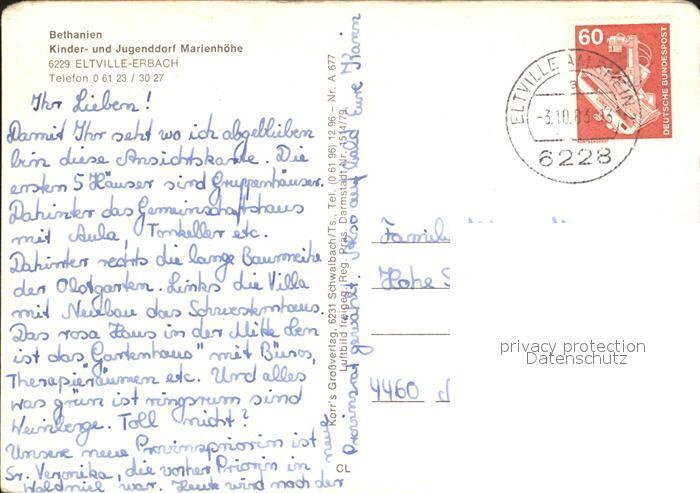 Bethanien
Kinder- und Jugenddorf Marienhöhe
6229 ELTVILLE-ERBACH
Telefon 0 61 23 / 30 27
Ihr Lieben!
Damit Ihr seht wo ich abgeblieben
bin diese Ansichtskarte. Die
ersten 5 Häuser sind Gruppenhäuser.
Dahinter das Gemeinschaftshaus
mit Aula, Tonkeller etc.
Dahinter rechts die lange Baumreihe
der Obstgarten. Links die Villa
mit Neubau das Schwesternhaus.
Das rosa Haus in der Mitte
ist das "Gartenhaus" mit Büros,
Therapieräumen etc. Und alles
was grün ist ringsrum sind
Weinberge. Toll nicht?
Unsere neue Provinspriorin ist
Sr. Veronika, die vorher Priorin in
Waldniel war. Heute wird noch der
neue
Provinsrat gewählt. Also auf bald Eure Karin
Korr's Großverlag, 6231 Schwalbach/Ts., Tel. (0 61 96) 12 96 – Nr. A 677
Luftbild freigeg. Reg. Präs. Darmstadt Nr. 1514/79
CL
60
DEUTSCHE BUNDESPOST
ELTVILLE AM RHEIN 1
a
-3.10.83-
6228
Famili
Hohe S
4460
privacy protection
Datenschutz